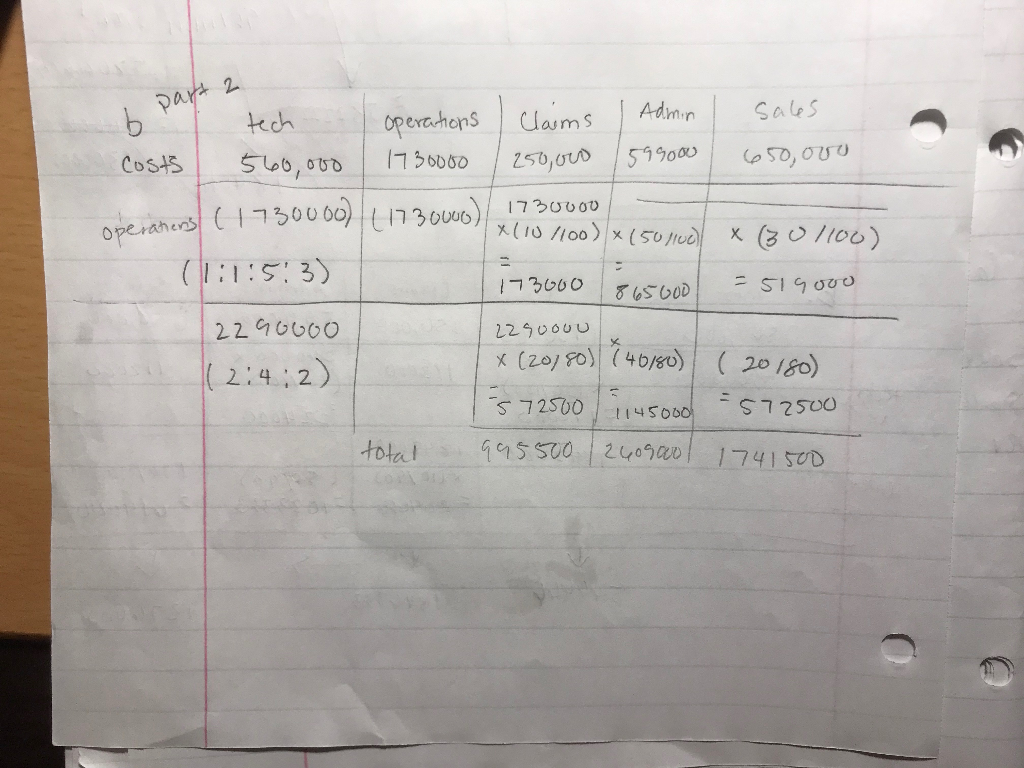 part 2
b tech operations Claims Admin Sales
Costs 560,000 1730000 250,000 599000 650,000
operations (1730000) (1730000) 1730000
x(10/100) x(50/100) x (30/100)
= =
(1:1:5:3) 173000 865000 = 519000
2290000 2290000
x (20/80) x (40/80) (20/80)
(2:4:2)
= 572500 = 1145000 = 572500
total 995500 2609000 1741500